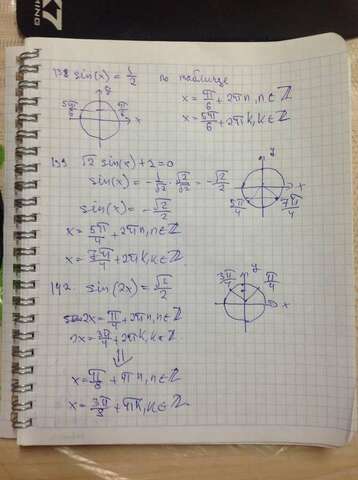 138 sin(x) = 1/2 по таблице
y
5π/6 π/6 x
x = π/6 + 2πn, n ∈ ℤ
x = 5π/6 + 2πk, k ∈ ℤ
139 √2 sin(x) + 2 = 0
sin(x) = -1/√2 · √2/√2 = -√2/2
sin(x) = -√2/2
y
x
5π/4 7π/4
x = 5π/4 + 2πn, n ∈ ℤ
x = 7π/4 + 2πk, k ∈ ℤ
142 sin(2x) = √2/2
y
3π/4 π/4
x
2x = π/4 + 2πn, n ∈ ℤ
2x = 3π/4 + 2πk, k ∈ ℤ
⇓
x = π/8 + πn, n ∈ ℤ
x = 3π/8 + πk, k ∈ ℤ